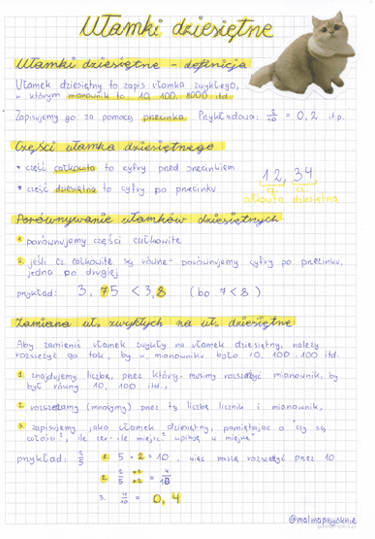 Ułamki dziesiętne
Ułamki dziesiętne - definicja
Ułamek dziesiętny to zapis ułamka zwykłego,
w którym mianownik to 10, 100, 1000 itd.
Zapisujemy go za pomocą przecinka. Przykładowo: 2/10 = 0,2 itp.
Części ułamka dziesiętnego
• część całkowita to cyfry przed przecinkiem
• część dziesiętna to cyfry po przecinku
12,34
całkowita dziesiętna
Porównywanie ułamków dziesiętnych
1. porównujemy części całkowite
2. jeśli cz. całkowite są równe - porównujemy cyfry po przecinku,
jedna po drugiej
przykład: 3,75 < 3,8 (bo 7<8)
Zamiana uł. zwykłych na uł. dziesiętne
Aby zamienić ułamek zwykły na ułamek dziesiętny, należy
rozszerzyć go tak, by w mianowniku było 10, 100, 100 itd.
1. znajdujemy liczbę, przez którą musimy rozszerzyć mianownik, by
był równy 10, 100 itd.,
2. rozszerzamy (mnożymy) przez tą liczbę licznik i mianownik,
3. zapisujemy jako ułamek dziesiętny, pamiętając o
przykład: 2/5 1. 5 · 2 = 10, więc muszę rozszerzyć przez
2. 2/5 = 4/10
3. 4/10 = 0,4